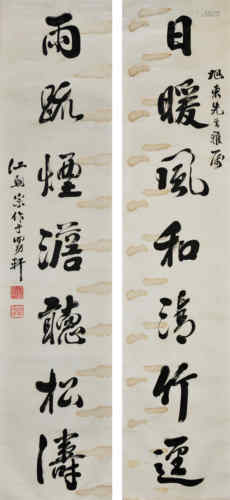 旭東先生雅属
日暖風和清竹逕
雨疏煙澹聽松濤
江朝宗作于